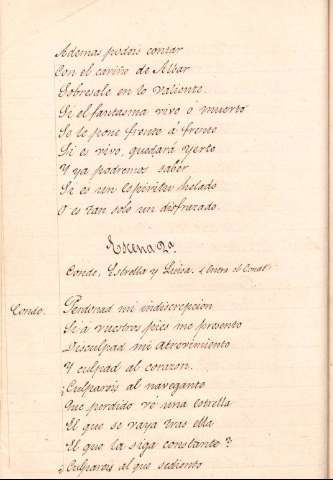 Ademas podeis contar
Con el cariño de Alvar
Sobresale en lo valiente.
Si el fantasma vivo ó muerto
Se le pone frente á frente
Si es vivo, quedará yerto
Y ya podremos saber
Si es un espiritu helado
O es tan solo un disfrazado.
Escena 2ª
Conde, Estrella y Luisa. (Entra el Conde)
Conde. Perdonad mi indiscrecion
Si a vuestros pies me presento
Desculpad mi atrevimiento
Y culpad al corazon.
¿Culpareis al navegante
Que perdido vé una estrella
El que se vaya tras ella
El que la siga constante?
¿Culpareis al que sediento